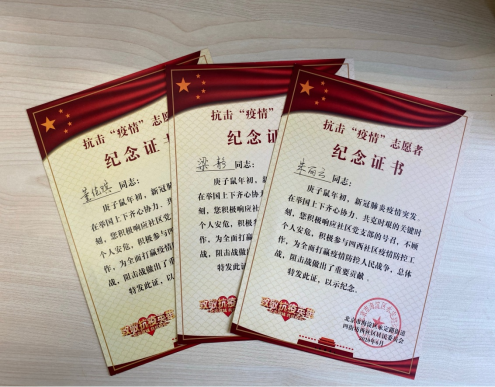 抗击“疫情”志愿者
纪念证书
同志:
庚子鼠年初,新冠肺
在举国上下齐心协力、共
刻,您积极响应社区党
个人安危,积极参与四
作,为全面打赢疫情防
战,阻击战做出了重
特发此证,以
致敬抗疫英雄
抗击“疫情”志愿者
纪念证书
梁杉 同志:
庚子鼠年初,新冠
在举国上下齐心协力
刻,您积极响应社区
个人安危,积极参与
作,为全面打赢疫情
战,阻击战做出了
特发此证,
致敬抗疫英雄
抗击“疫情”志愿者
纪念证书
朱丽云 同志:
庚子鼠年初,新冠肺炎疫情突发,
在举国上下齐心协力、共克时艰的关键时
刻,您积极响应社区党支部的号召,不顾
个人安危,积极参与四西社区疫情防控工
作,为全面打赢疫情防控人民战争,总体
战,阻击战做出了重要贡献。
特发此证,以示纪念。
北京市海淀区永定路街道
四街坊西社区居民委员会
2020年6月